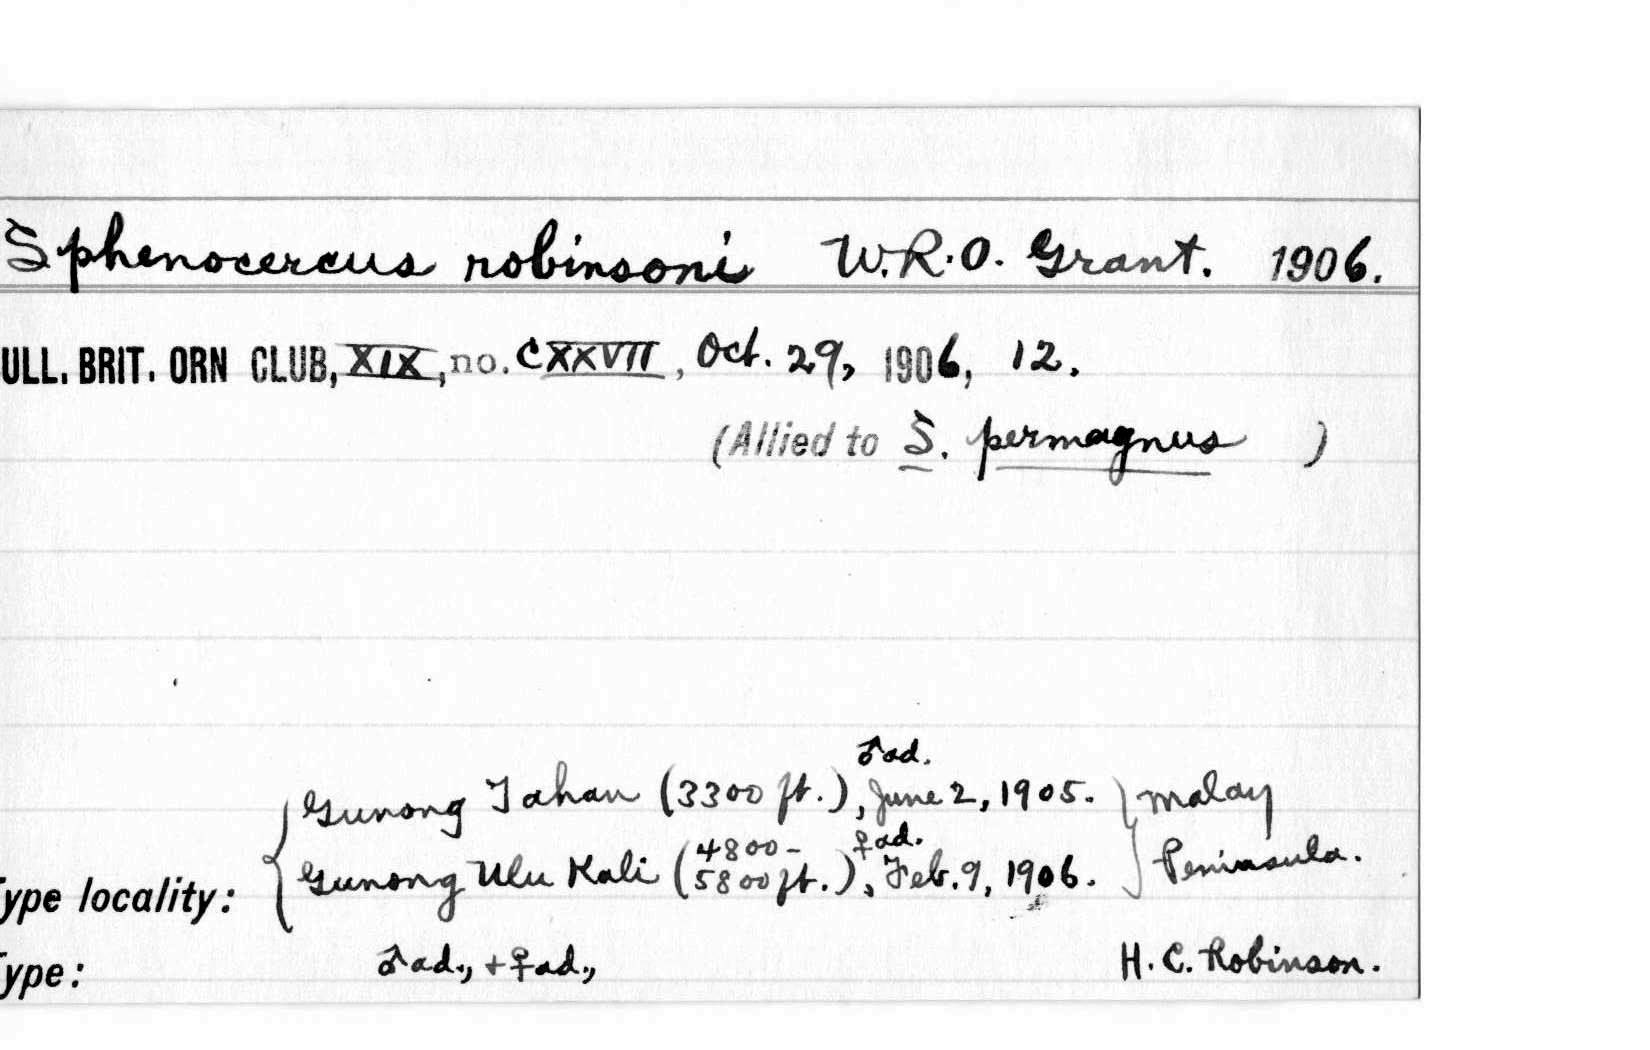 Sphenocercus robinsoni W.R.O. Grant. 1906.
ULL. BRIT. ORN CLUB, XIX, no. CXXVII, Oct. 29, 1906, 12.
(Allied to S. permagnus )
♂ad.
Gunong Tahan (3300 ft.), June 2, 1905.
Malay
♀ad.
Gunong Ulu Kali (4800-5800 ft.), Feb. 9, 1906.
Peninsula.
ype locality:
ype: ♂ad., + ♀ad., H. C. Robinson.